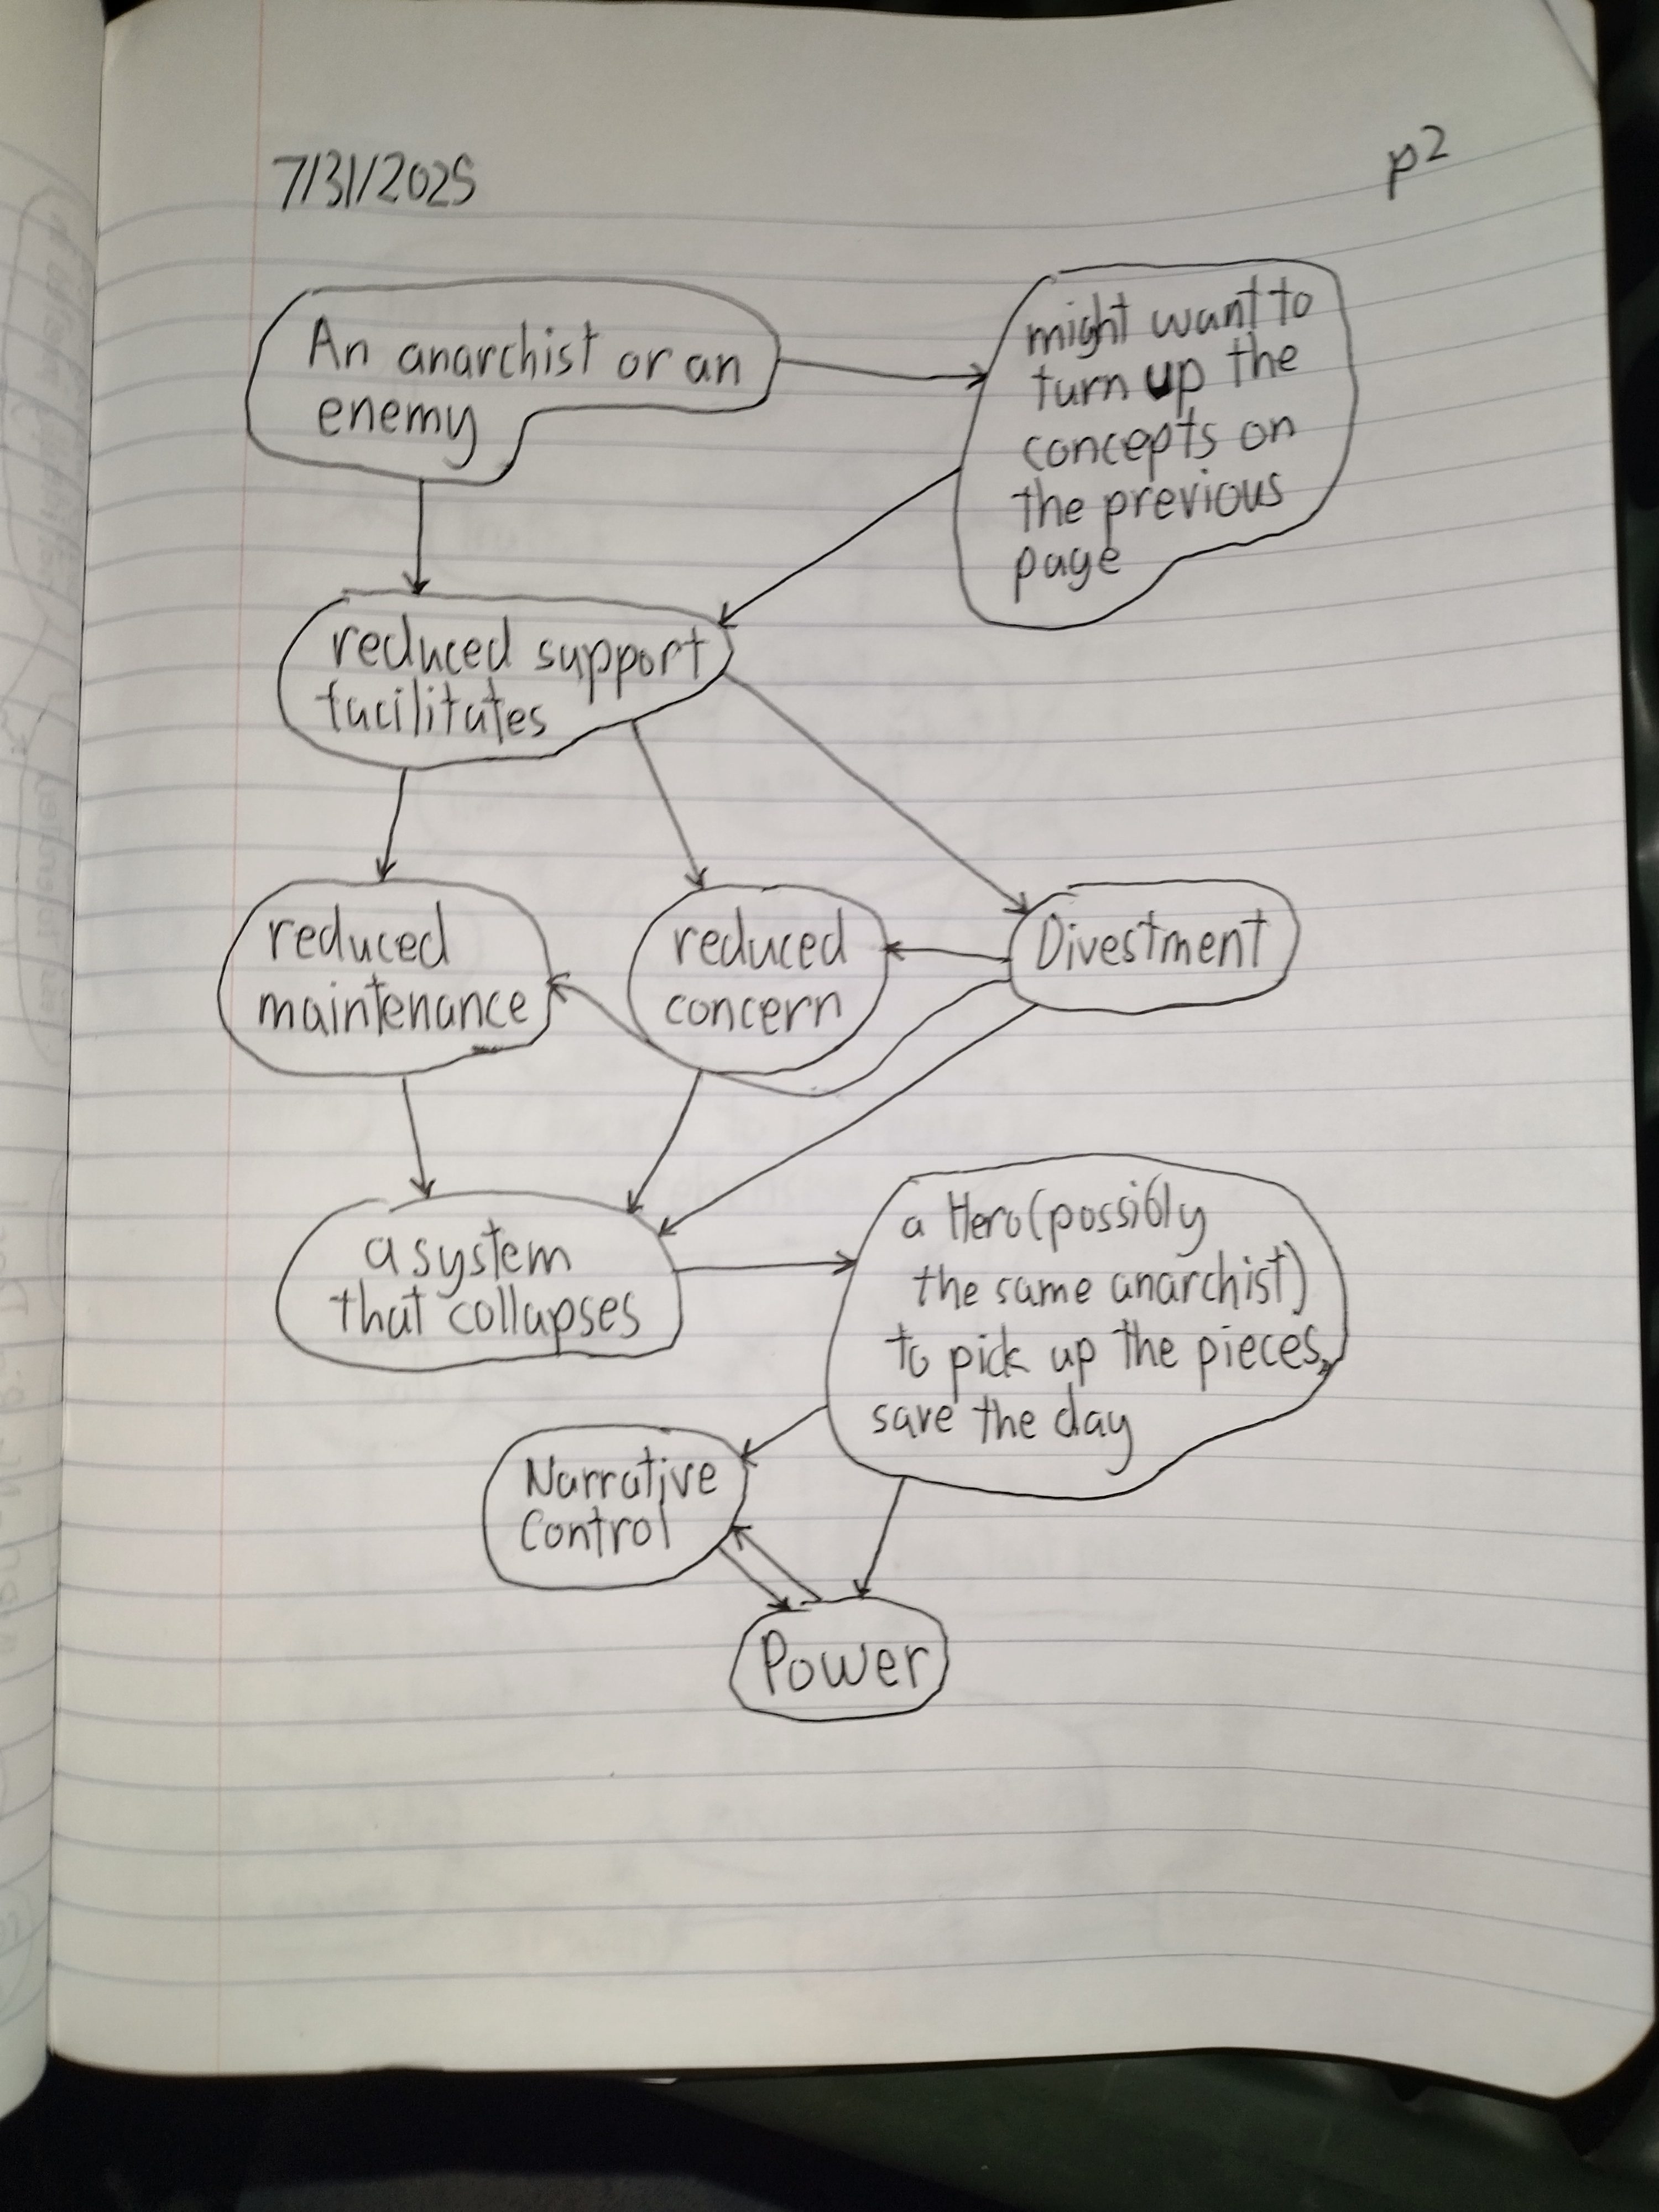 7/31/2025
p2
An anarchist or an
enemy
might want to
turn up the
concepts on
the previous
page
reduced support
facilitates
reduced
maintenance
reduced
concern
Divestment
a system
that collapses
a Hero (possibly
the same anarchist)
to pick up the pieces,
save the day
Narrative
Control
Power